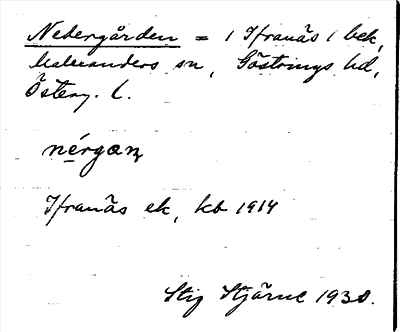 Nedergården = 1 Ifranäs 1 bek,
Malexanders sn, Göstrings hd,
Österg. l.
nérgaṇ
Ifranäs ek, kb 1914
Stig Stjärne 1930.